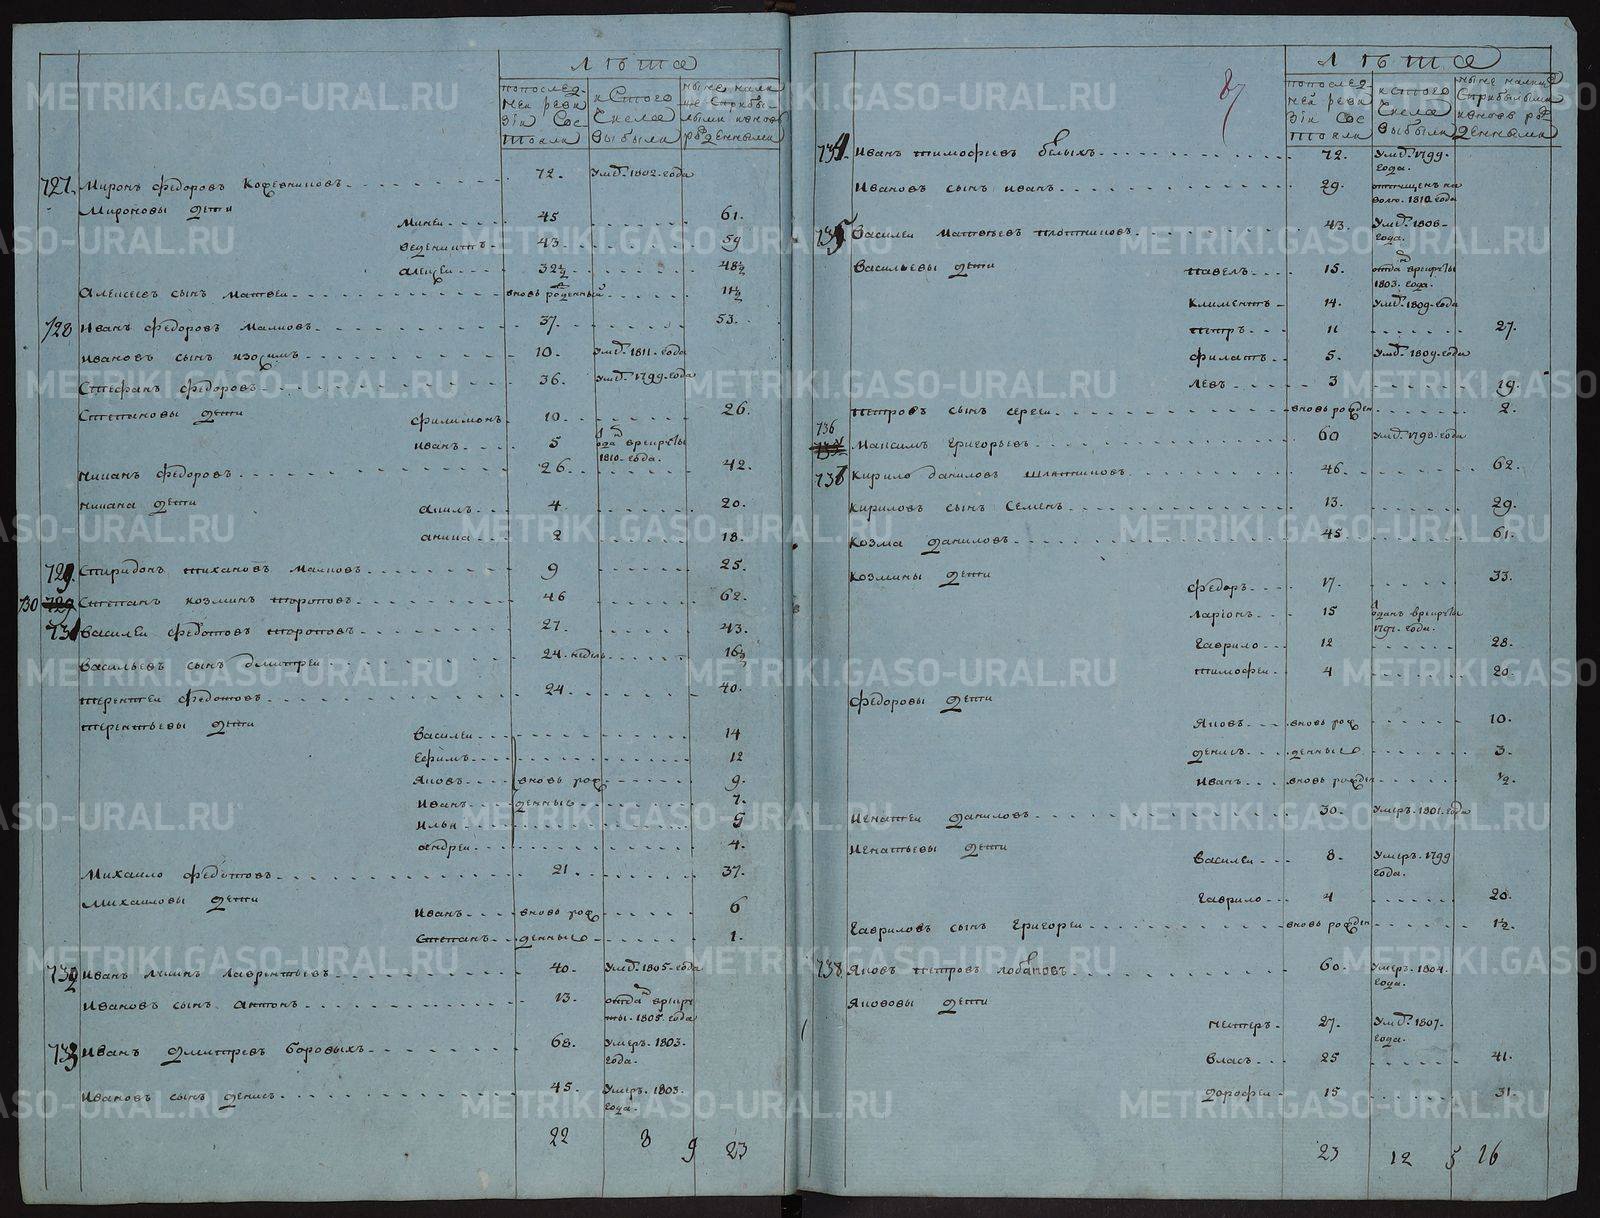 лѣта
попослед-
ней реви
зіи сос
тояли
к Стого
Числа
выбыли
ныне нали
це Сприбы-
лыми ивновь
рожденными
727. Миронъ федоровъ Кожевниковъ 72. Умер. 1802. года
Мироновы дети
Миней 45 61.
веденинтъ 43 59
алексеи 32½ 48½
Алексеевъ сынъ Матвеи вновь рожденный 11½
728 Иванъ федоровъ малковъ 37. 53.
Ивановъ сынъ изосимъ 10. Умер. 1811. года
Стефанъ федоровъ 36. Умер. 1799. года
Степановы дети
филимонъ 10. 26.
иванъ 5 отдан врекруты
1810. года.
никанъ федоровъ 26. 42.
никана дети
акилъ 4 20.
аника 2 18.
729. Спиридонъ тихановъ Малковъ 9 25.
730 729 Степанъ козминъ торо­повъ 46 62.
731 Василеи федотовъ тороповъ 27. 43.
Васильевъ сынъ дмитреи 24. недель 16½
терентеи федотовъ 24. 40.
терентьевы дети
василеи 14
Ефимъ 12
Яковъ вновь рож 9.
Иванъ денные 7.
Илья 5
андреи 4.
Михаило федотовъ 21 37.
Михаиловы дети
Иванъ вновь рож 6
Степанъ денные 1.
732 Иванъ лукинъ лаврентьевъ 40. Умер. 1805. года
Ивановъ сынъ антонъ 13. отдан врекру
ты. 1805. года
733 Иванъ дмитревъ боровыхъ 68. Умеръ. 1803.
года.
Ивановъ сынъ денисъ 45. Умеръ. 1803.
года.
22 8 9 23
лѣта
попослед-
ней реви
зіи Сос
тояли
к Стого
Числа
выбыли
ныне нали це
Сприбылыми
ивновь ро
жденными
87
734. Иванъ тимофеевъ бѣлыхъ 72. Умер. 1799.
года.
Ивановъ сынъ иванъ 29. отпущенъ на
волю. 1810. года
735 Василеи матвеевъ плотниковъ 43. Умер. 1806.
года.
Васильевы дети
павелъ 15. отдан врекруты
1803. года.
Климентъ 14. Умер. 1809. года
петръ 11 27.
филатъ 5. Умер. 1809. года
левъ 3 19.
петровъ сынъ сергеи вновь рожден 2.
736
Максимъ григорьевъ 60 Умер. 1798. года
737 Кирило даниловъ шляпниковъ 46. 62.
кириловъ сынъ Семенъ 13. 29.
Козма даниловъ 45 61.
Козмины дети
федоръ 17. 33.
ларіонъ 15 отданъ врекруты
1797. года.
гаврило 12 28.
тимофеи 4 20.
федоровы дети
Яковъ вновь рож 10.
денисъ денные 3.
Иванъ вновь рожден ½.
Игнатеи даниловъ 30. Умеръ. 1801. года
Игнатьевы дети
Василеи 8. Умеръ. 1799
года.
гаврило 4 20.
Гавриловъ сынъ григореи вновь рожден 1½.
738. Яковъ петровъ лобановъ 60. Умеръ. 1804.
года.
Якововы дети
нестеръ 27. Умер. 1807.
года.
Власъ 25 41.
дорофеи 15 31.
23 12 5 16
METRIKI.GASO-URAL.RU